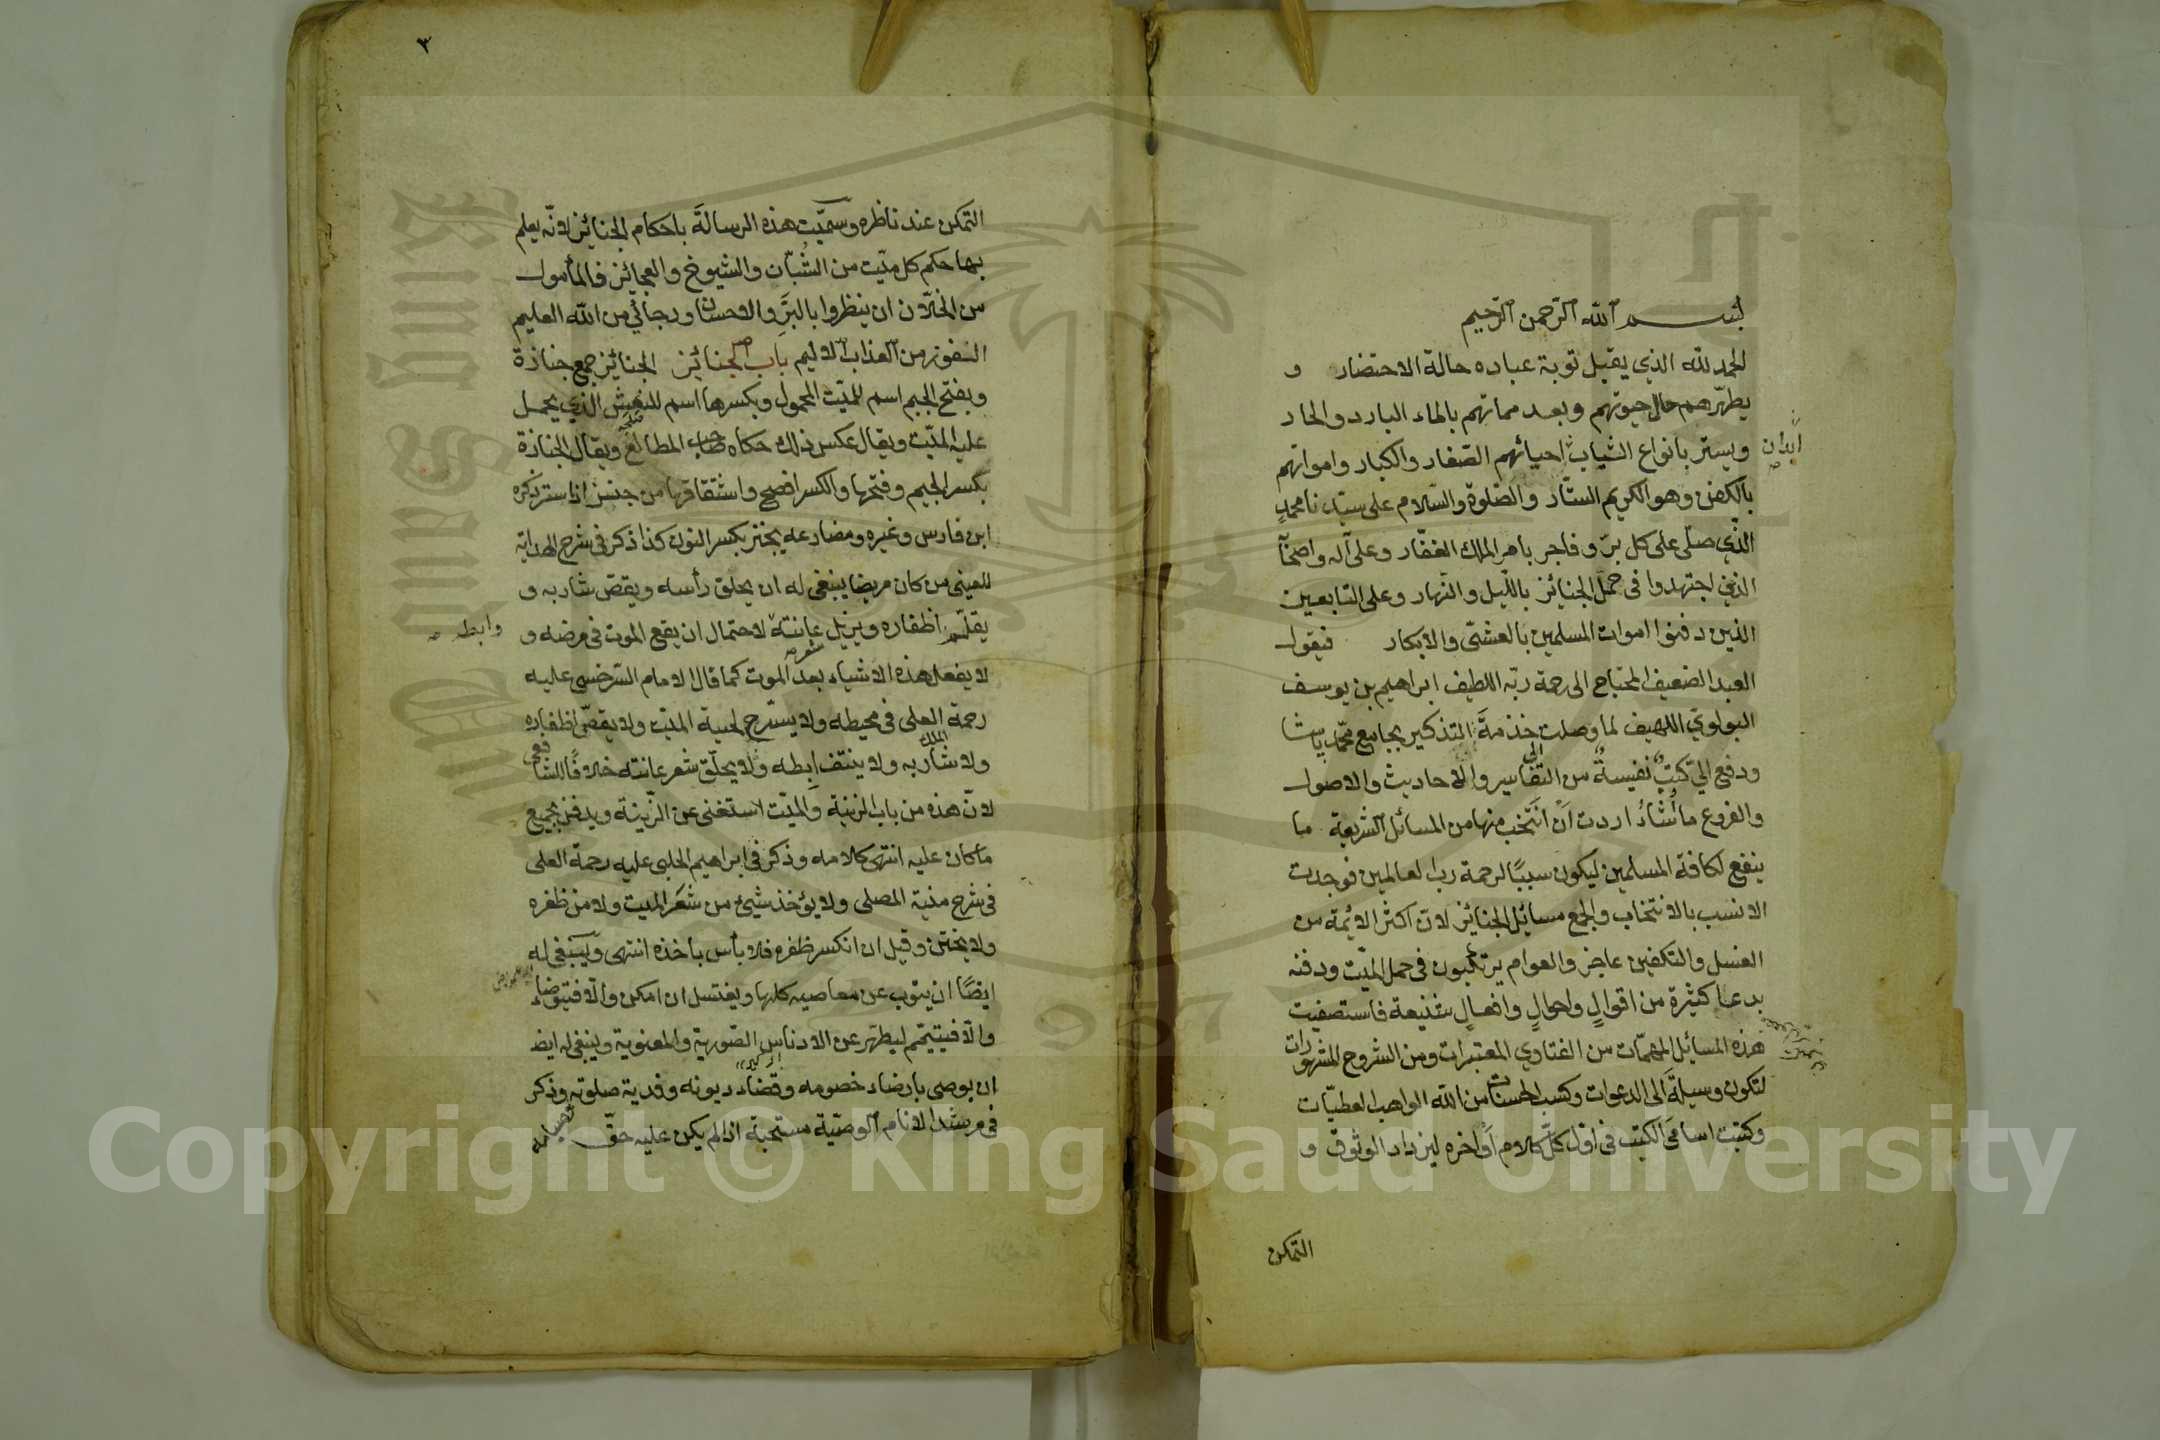 بسم الله الرحمن الرحيم
الحمد لله الذي يقبل توبة عباده حالة الاحتضار و
يطهّرهم حال حيوتهم وبعد مماتهم بالماء البارد والحار
ويستر بانواع الثياب احيائهم الصّغار والكبار وامواتهم
ابدان
بالكفن وهو الكريم الستّار والصّلوة والسّلام على سيّدنا محمدٍ
الذّي صلّى على كل برّ وفاجر بامر الملك الغفّار وعلى آله واصحاب
الذين اجتهدوا فى حمل الجنائز بالليل والنهار وعلى التابعين
الذين دفنوا اموات المسلمين بالعشىّ والابكار فيقول
العبد الضعيف المحتاج الى رحمة ربّه اللطيف ابراهيم بن يوسف
البولوي اللهيف لما وصلت خدمةَ التذكير بجامع محمّد پاشا
ودفع اليّ كتبٌ نفيسةٌ من التفاسير والاحاديث والاصول
والفروع ما اُشاءُ اردت اَنْ انتخب منها من المسائل الشريعة ما
ينفع لكافة المسلمين ليكون سببًا لرحمة رب العالمين فوجدت
الانسب بالانتخاب والجمع مسائل الجنائز لانّ اكثر الائمة من
الغسل والتكفين عاجز والعوام يرتكبون فى حمل الميّت ودفنه
بدعا كثيرة من اقوالٍ واحوالٍ وافعالٍ شنيعة فاستصفيت
هذه المسائل المهمّات من الفتاوي المعتبرات ومن الشروح المشهورات
لتكون وسيلةً الى الدعوات وكسب الحسنات من الله الواهب العطيّات
وكتبت اسامىَ الكتب فى اوّل كلّ كلام أو آخره ليزداد الوثوق و
التمكن
٣
التمكن عند ناظره وسمّيت هذه الرسالةَ باحكام الجنائز لانّه يعلم
بها حكم كل ميّت من الشُبّان والشيوخ والعجائز فالمأمول
من الخلّان ان ينظروا بالبرّ والاحسان ورجائي من الله العليم
الفوز من العذاب الاليم باب الجنائز الجنائز جمع جنازة
وبفتح الجيم اسم للميّت المحمول وبكسرها اسم للنعش الذي يحمل
عليه الميّت ويقال عكس ذلك حكاه صاحب المطالع ويقال الجنازة
بكسر الجيم وفتحها والكسر افصح واشتقاقها من جنز اذا ستر ذكره
ابن فارس وغيره ومضارعه يجنز بكسر النون كذا ذكر فى شرح الهداية
للعينى من كان مريضا ينبغى له ان يحلق رأسه ويقصّ شاربه و
يقلّم اظفاره ويزيل عانته لاحتمال ان يقع الموت فى مرضه و
وابطه صح
لا يفعل هذه الاشياء بعد الموت كما قال الامام السّرخسى عليه
رحمة العلى فى محيطه ولا يسرّح لحية الميّت ولا يقصّ اظفاره
ولا شاربه ولا ينتف ابطه ولا يحلّق شعر عانته خلافًا للشافعى
لانّ هذه من باب الزينة والميّت استغنى عن الزّينة ويدفن بجميع
ما كان عليه انتهى كلامه وذكر فى ابراهيم الحلبى عليه رحمة العلى
فى شرح منية المصلى ولا يؤخذ شيئ من شَعَر الميت ولا من ظفره
ولا يختن وقيل ان انكسر ظفره فلا بأس باخذه انتهى وينبغى له
ايضًا ان يتوب عن معاصيه كلها ويغتسل ان امكن والّا فيتوضاء
والّا فيتيمّم ليطهّر عن الادناس الصّورية والمعنوية وينبغى له ايضا
ان يوصى بارضاء خصومه وقضاء ديونه وفدية صلوته وذكر
فى مرشد الانام الوصيّة مستحبّة اذا لم يكن عليه حقّ
Copyright © King Saud University
King Saud University
1957